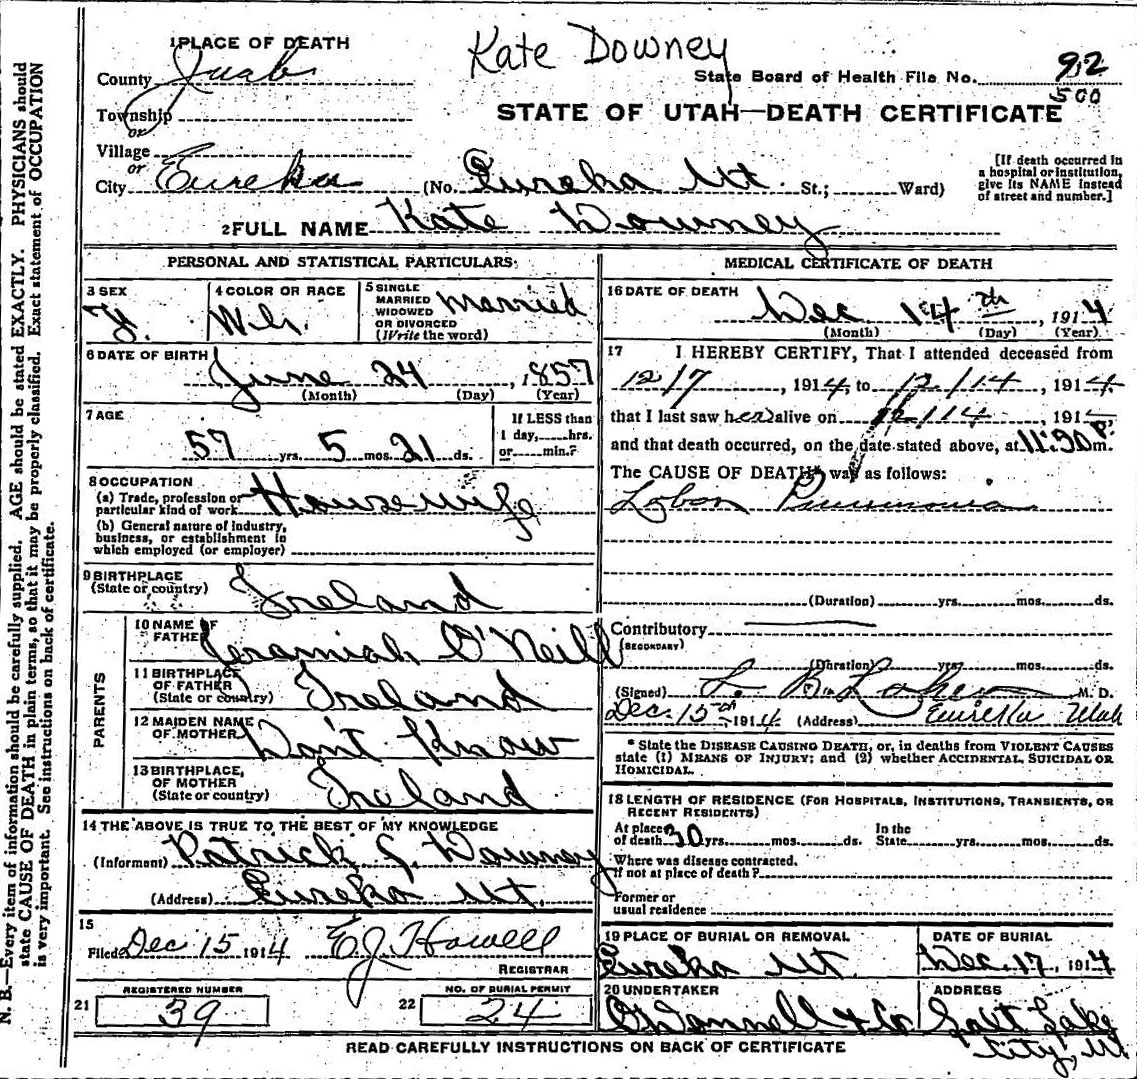 Kate Downey
1 PLACE OF DEATH
County Juab
State Board of Health File No. 92
500
Township
or
STATE OF UTAH—DEATH CERTIFICATE
Village
or
City Eureka (No. Eureka Ut. St.; Ward)
[If death occurred in
a hospital or institution,
give its NAME instead
of street and number.]
2 FULL NAME Kate Downey
PERSONAL AND STATISTICAL PARTICULARS
3 SEX
F.
4 COLOR OR RACE
Wh.
5 SINGLE
MARRIED
WIDOWED
OR DIVORCED
(Write the word)
Married
6 DATE OF BIRTH
June 24, 1857
(Month) (Day) (Year)
7 AGE
57 yrs. 5 mos. 21 ds.
If LESS than
1 day, hrs.
or min.?
8 OCCUPATION
(a) Trade, profession or
particular kind of work Housewife
(b) General nature of industry,
business, or establishment in
which employed (or employer)
9 BIRTHPLACE
(State or country) Ireland
PARENTS
10 NAME OF
FATHER Jeramiah O'Neill
11 BIRTHPLACE
OF FATHER
(State or country) Ireland
12 MAIDEN NAME
OF MOTHER Don't Know
13 BIRTHPLACE,
OF MOTHER
(State or country) Ireland
14 THE ABOVE IS TRUE TO THE BEST OF MY KNOWLEDGE
(Informant) Patrick J. Downey
(Address) Eureka Ut.
15
Filed Dec 15 1914 E.J. Howell
REGISTRAR
21 REGISTERED NUMBER
39
22 NO. OF BURIAL PERMIT
24
MEDICAL CERTIFICATE OF DEATH
16 DATE OF DEATH
Dec 14th, 1914
(Month) (Day) (Year)
17 I HEREBY CERTIFY, That I attended deceased from
12/7, 1914, to 12/14, 1914.
that I last saw her alive on 12/14, 191
and that death occurred, on the date stated above, at 11:30 P. m.
The CAUSE OF DEATH* was as follows:
Lobar Pneumonia
(Duration) yrs. mos. ds.
Contributory
(SECONDARY)
(Duration) yrs. mos. ds.
(Signed) M. D.
Dec. 15th 1914 (Address) Eureka Utah
* State the DISEASE CAUSING DEATH, or, in deaths from VIOLENT CAUSES
state (1) MEANS OF INJURY; and (2) whether ACCIDENTAL, SUICIDAL OR
HOMICIDAL.
18 LENGTH OF RESIDENCE (FOR HOSPITALS, INSTITUTIONS, TRANSIENTS, OR
RECENT RESIDENTS)
At place
of death 30 yrs. mos. ds.
In the
State yrs. mos. ds.
Where was disease contracted.
if not at place of death?
Former or
usual residence
19 PLACE OF BURIAL OR REMOVAL
Eureka Ut.
DATE OF BURIAL
Dec. 17, 1914
20 UNDERTAKER
O'Donnell & Co
ADDRESS
Salt Lake
City, Ut
READ CAREFULLY INSTRUCTIONS ON BACK OF CERTIFICATE
N. B.—Every item of information should be carefully supplied. AGE should be stated EXACTLY. PHYSICIANS should
state CAUSE OF DEATH in plain terms, so that it may be properly classified. Exact statement of OCCUPATION
is very important. See instructions on back of certificate.